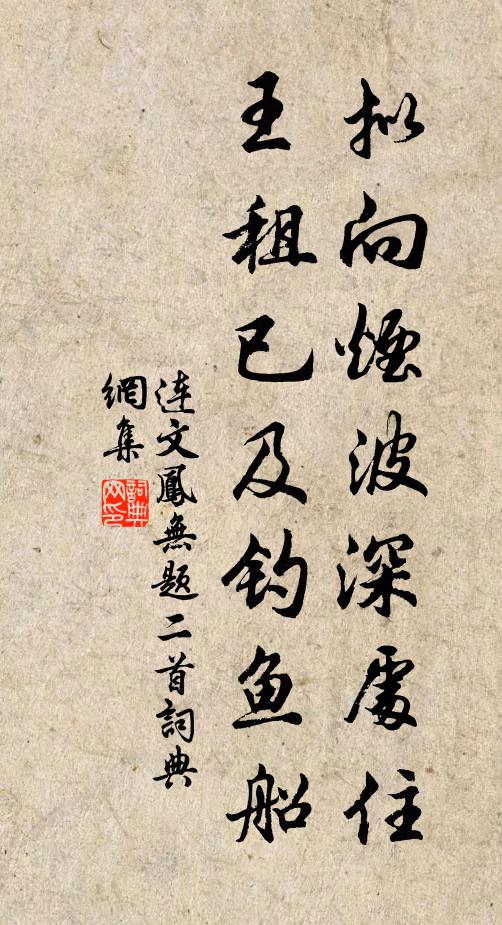 拟向煙波深處住
王租已及钓鱼船
连文鳳無题二首詞典
網集
詞典
网印